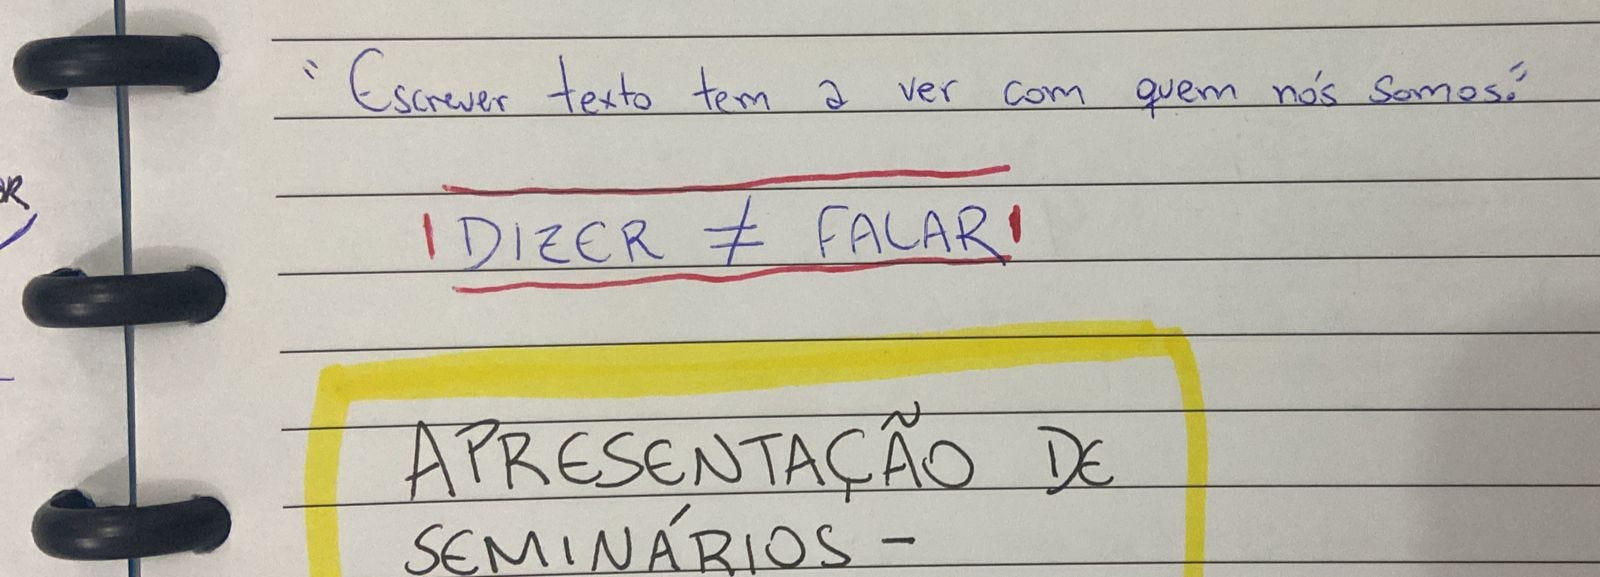 "Escrever texto tem a ver com quem nós somos."
DIZER ≠ FALAR
APRESENTAÇÃO DE
SEMINÁRIOS -